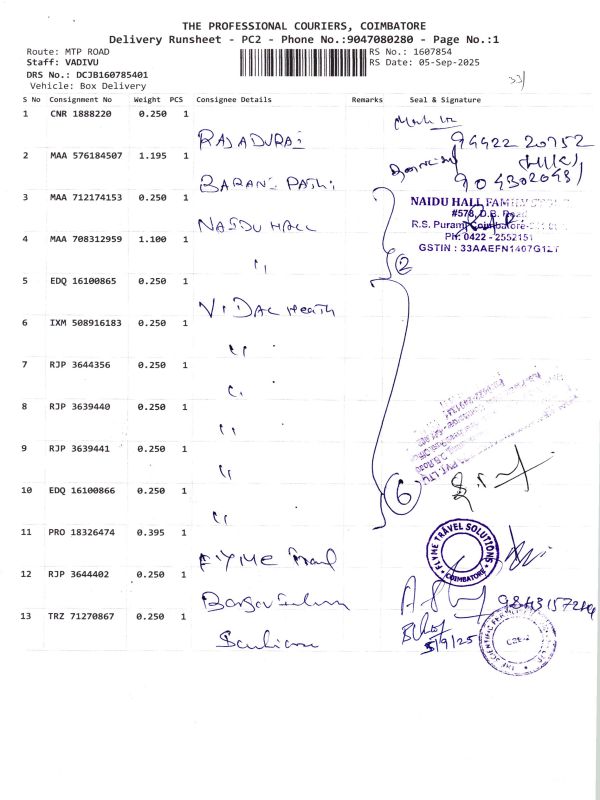 THE PROFESSIONAL COURIERS, COIMBATORE
Delivery Runsheet - PC2 - Phone No.:9047080280 - Page No.:1
Route: MTP ROAD
RS No.: 1607854
Staff: VADIVU
RS Date: 05-Sep-2025
DRS No.: DCJB160785401
Vehicle: Box Delivery
33
S No Consignment No Weight PCS Consignee Details Remarks Seal & Signature
1 CNR 1888220 0.250 1
RAJADURAI
94422 20752
2 MAA 576184507 1.195 1
BARANI PATHI
9043020431
3 MAA 712174153 0.250 1
NAIDU HALL
NAIDU HALL FAMILY
#578, D.B. Road
R.S. Puram, Coimbatore-
Ph: 0422 - 2552151
GSTIN : 33AAEFN1407G1ZT
4 MAA 708312959 1.100 1
"
2
5 EDQ 16100865 0.250 1
6 IXM 508916183 0.250 1
"
7 RJP 3644356 0.250 1
"
8 RJP 3639440 0.250 1
"
9 RJP 3639441 0.250 1
"
10 EDQ 16100866 0.250 1
"
6
11 PRO 18326474 0.395 1
FLYME Travel
FLYME TRAVEL SOLUTIONS
COIMBATORE
12 RJP 3644402 0.250 1
13 TRZ 71270867 0.250 1
5/9/25